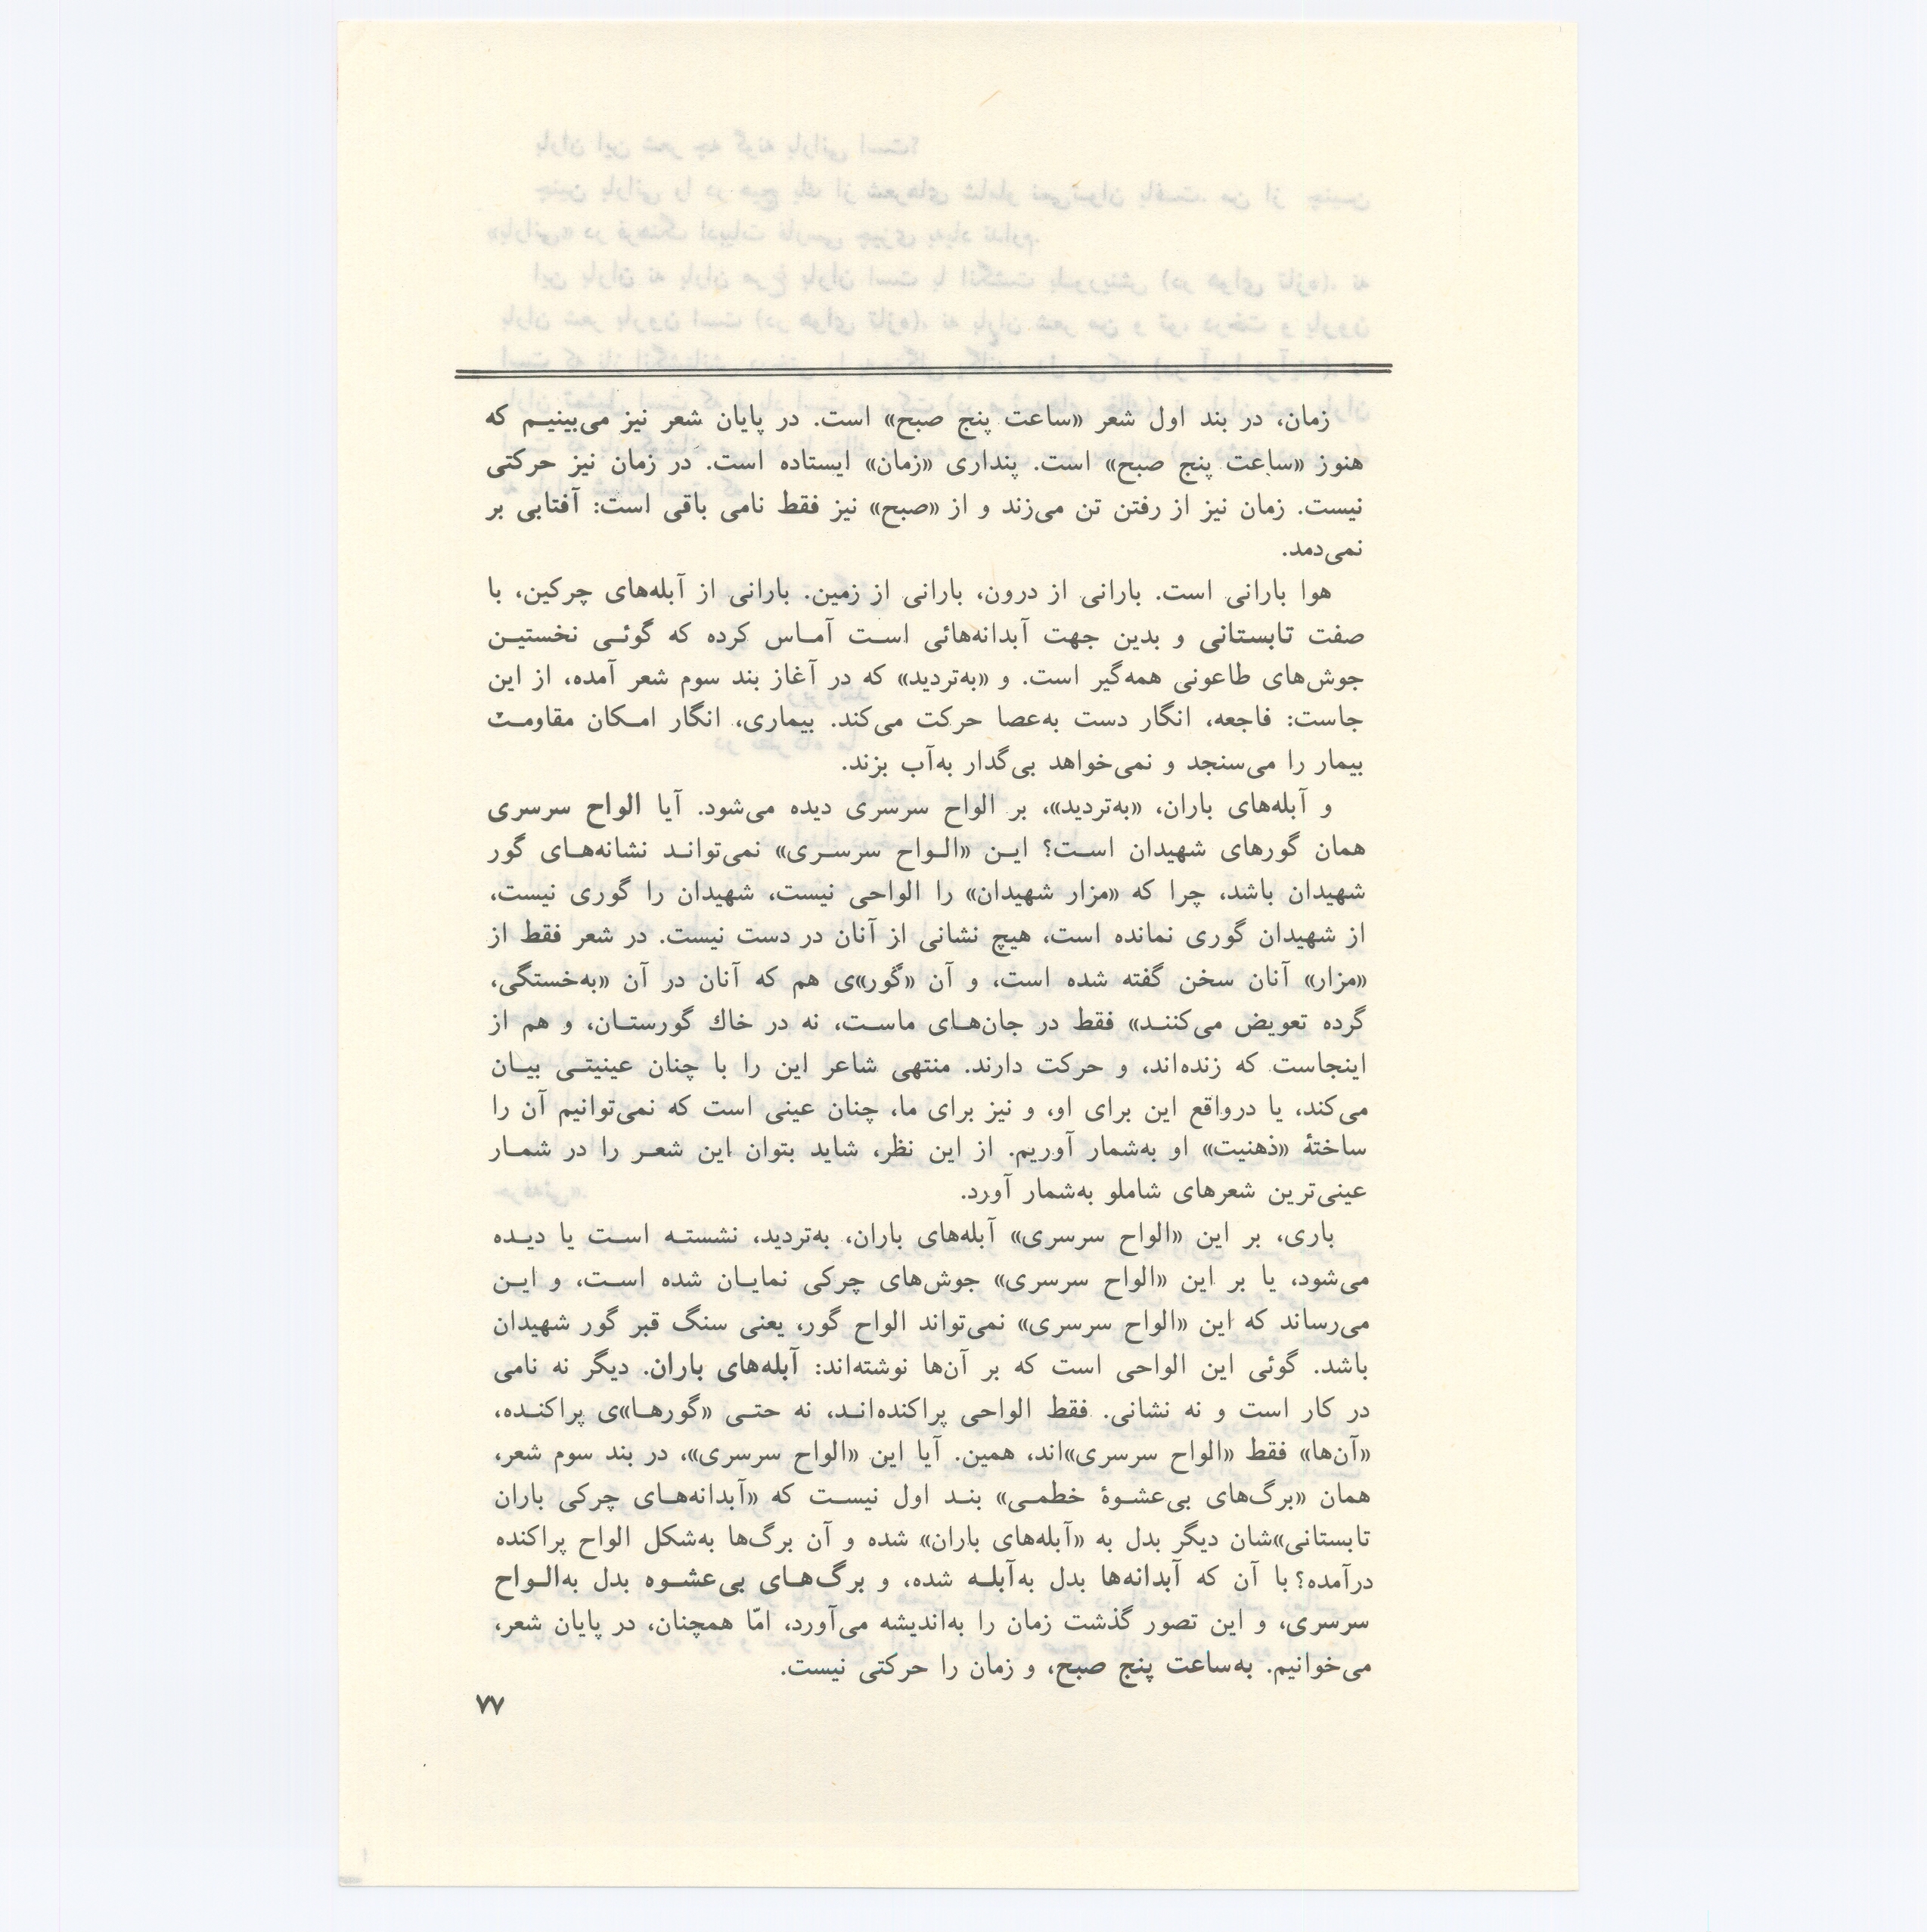 زمان، در بند اول شعر «ساعت پنج صبح» است. در پایان شعر نیز می‌بینیم که
هنوز «ساعت پنج صبح» است. پنداری «زمان» ایستاده است. در زمان نیز حرکتی
نیست. زمان نیز از رفتن تن می‌زند و از «صبح» نیز فقط نامی باقی است: آفتابی بر
نمی‌دمد.
هوا بارانی است. بارانی از درون، بارانی از زمین. بارانی از آبله‌های چرکین، با
صفت تابستانی و بدین جهت آبدانه‌هائی است آماس کرده که گوئی نخستین
جوش‌های طاعونی همه‌گیر است. و «به‌تردید» که در آغاز بند سوم شعر آمده، از این
جاست: فاجعه، انگار دست به‌عصا حرکت می‌کند. بیماری، انگار امکان مقاومت
بیمار را می‌سنجد و نمی‌خواهد بی‌گدار به‌آب بزند.
و آبله‌های باران، «به‌تردید»، بر الواح سرسری دیده می‌شود. آیا الواح سرسری
همان گورهای شهیدان است؟ این «الواح سرسری» نمی‌تواند نشانه‌های گور
شهیدان باشد، چرا که «مزار شهیدان» را الواحی نیست، شهیدان را گوری نیست،
از شهیدان گوری نمانده است، هیچ نشانی از آنان در دست نیست. در شعر فقط از
«مزار» آنان سخن گفته شده است، و آن «گور»ی هم که آنان در آن «به‌خستگی،
گرده تعویض می‌کنند» فقط در جان‌های ماست، نه در خاك گورستان، و هم از
اینجاست که زنده‌اند، و حرکت دارند. منتهی شاعر این را با چنان عینیتی بیان
می‌کند، یا درواقع این برای او، و نیز برای ما، چنان عینی است که نمی‌توانیم آن را
ساختهٔ «ذهنیت» او به‌شمار آوریم. از این نظر، شاید بتوان این شعر را در شمار
عینی‌ترین شعرهای شاملو به‌شمار آورد.
باری، بر این «الواح سرسری» آبله‌های باران، به‌تردید، نشسته است یا دیده
می‌شود، یا بر این «الواح سرسری» جوش‌های چرکی نمایان شده است، و این
می‌رساند که این «الواح سرسری» نمی‌تواند الواح گور، یعنی سنگ قبر گور شهیدان
باشد. گوئی این الواحی است که بر آن‌ها نوشته‌اند: آبله‌های باران. دیگر نه نامی
در کار است و نه نشانی. فقط الواحی پراکنده‌اند، نه حتی «گورها»ی پراکنده،
«آن‌ها» فقط «الواح سرسری»‌اند، همین. آیا این «الواح سرسری»، در بند سوم شعر،
همان «برگ‌های بی‌عشوهٔ خطمی» بند اول نیست که «آبدانه‌های چرکی باران
تابستانی»شان دیگر بدل به «آبله‌های باران» شده و آن برگ‌ها به‌شکل الواح پراکنده
درآمده؟ با آن که آبدانه‌ها بدل به‌آبله شده، و برگ‌های بی‌عشوه بدل به‌الواح
سرسری، و این تصور گذشت زمان را به‌اندیشه می‌آورد، امّا همچنان، در پایان شعر،
می‌خوانیم. به‌ساعت پنج صبح، و زمان را حرکتی نیست.
۷۷